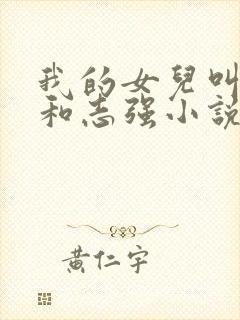 我的女兒叫
和志强小説
黃仁宇